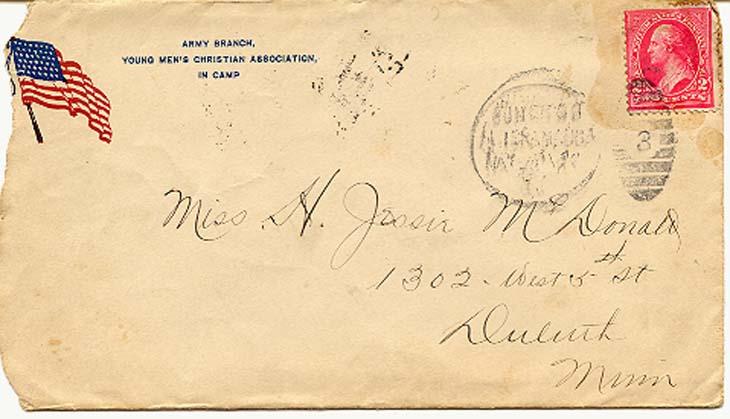 ARMY BRANCH,
YOUNG MEN'S CHRISTIAN ASSOCIATION,
IN CAMP
2
CENTS
3
Miss. H. Jessie McDonald
1302 - West 5th St
Duluth
Minn